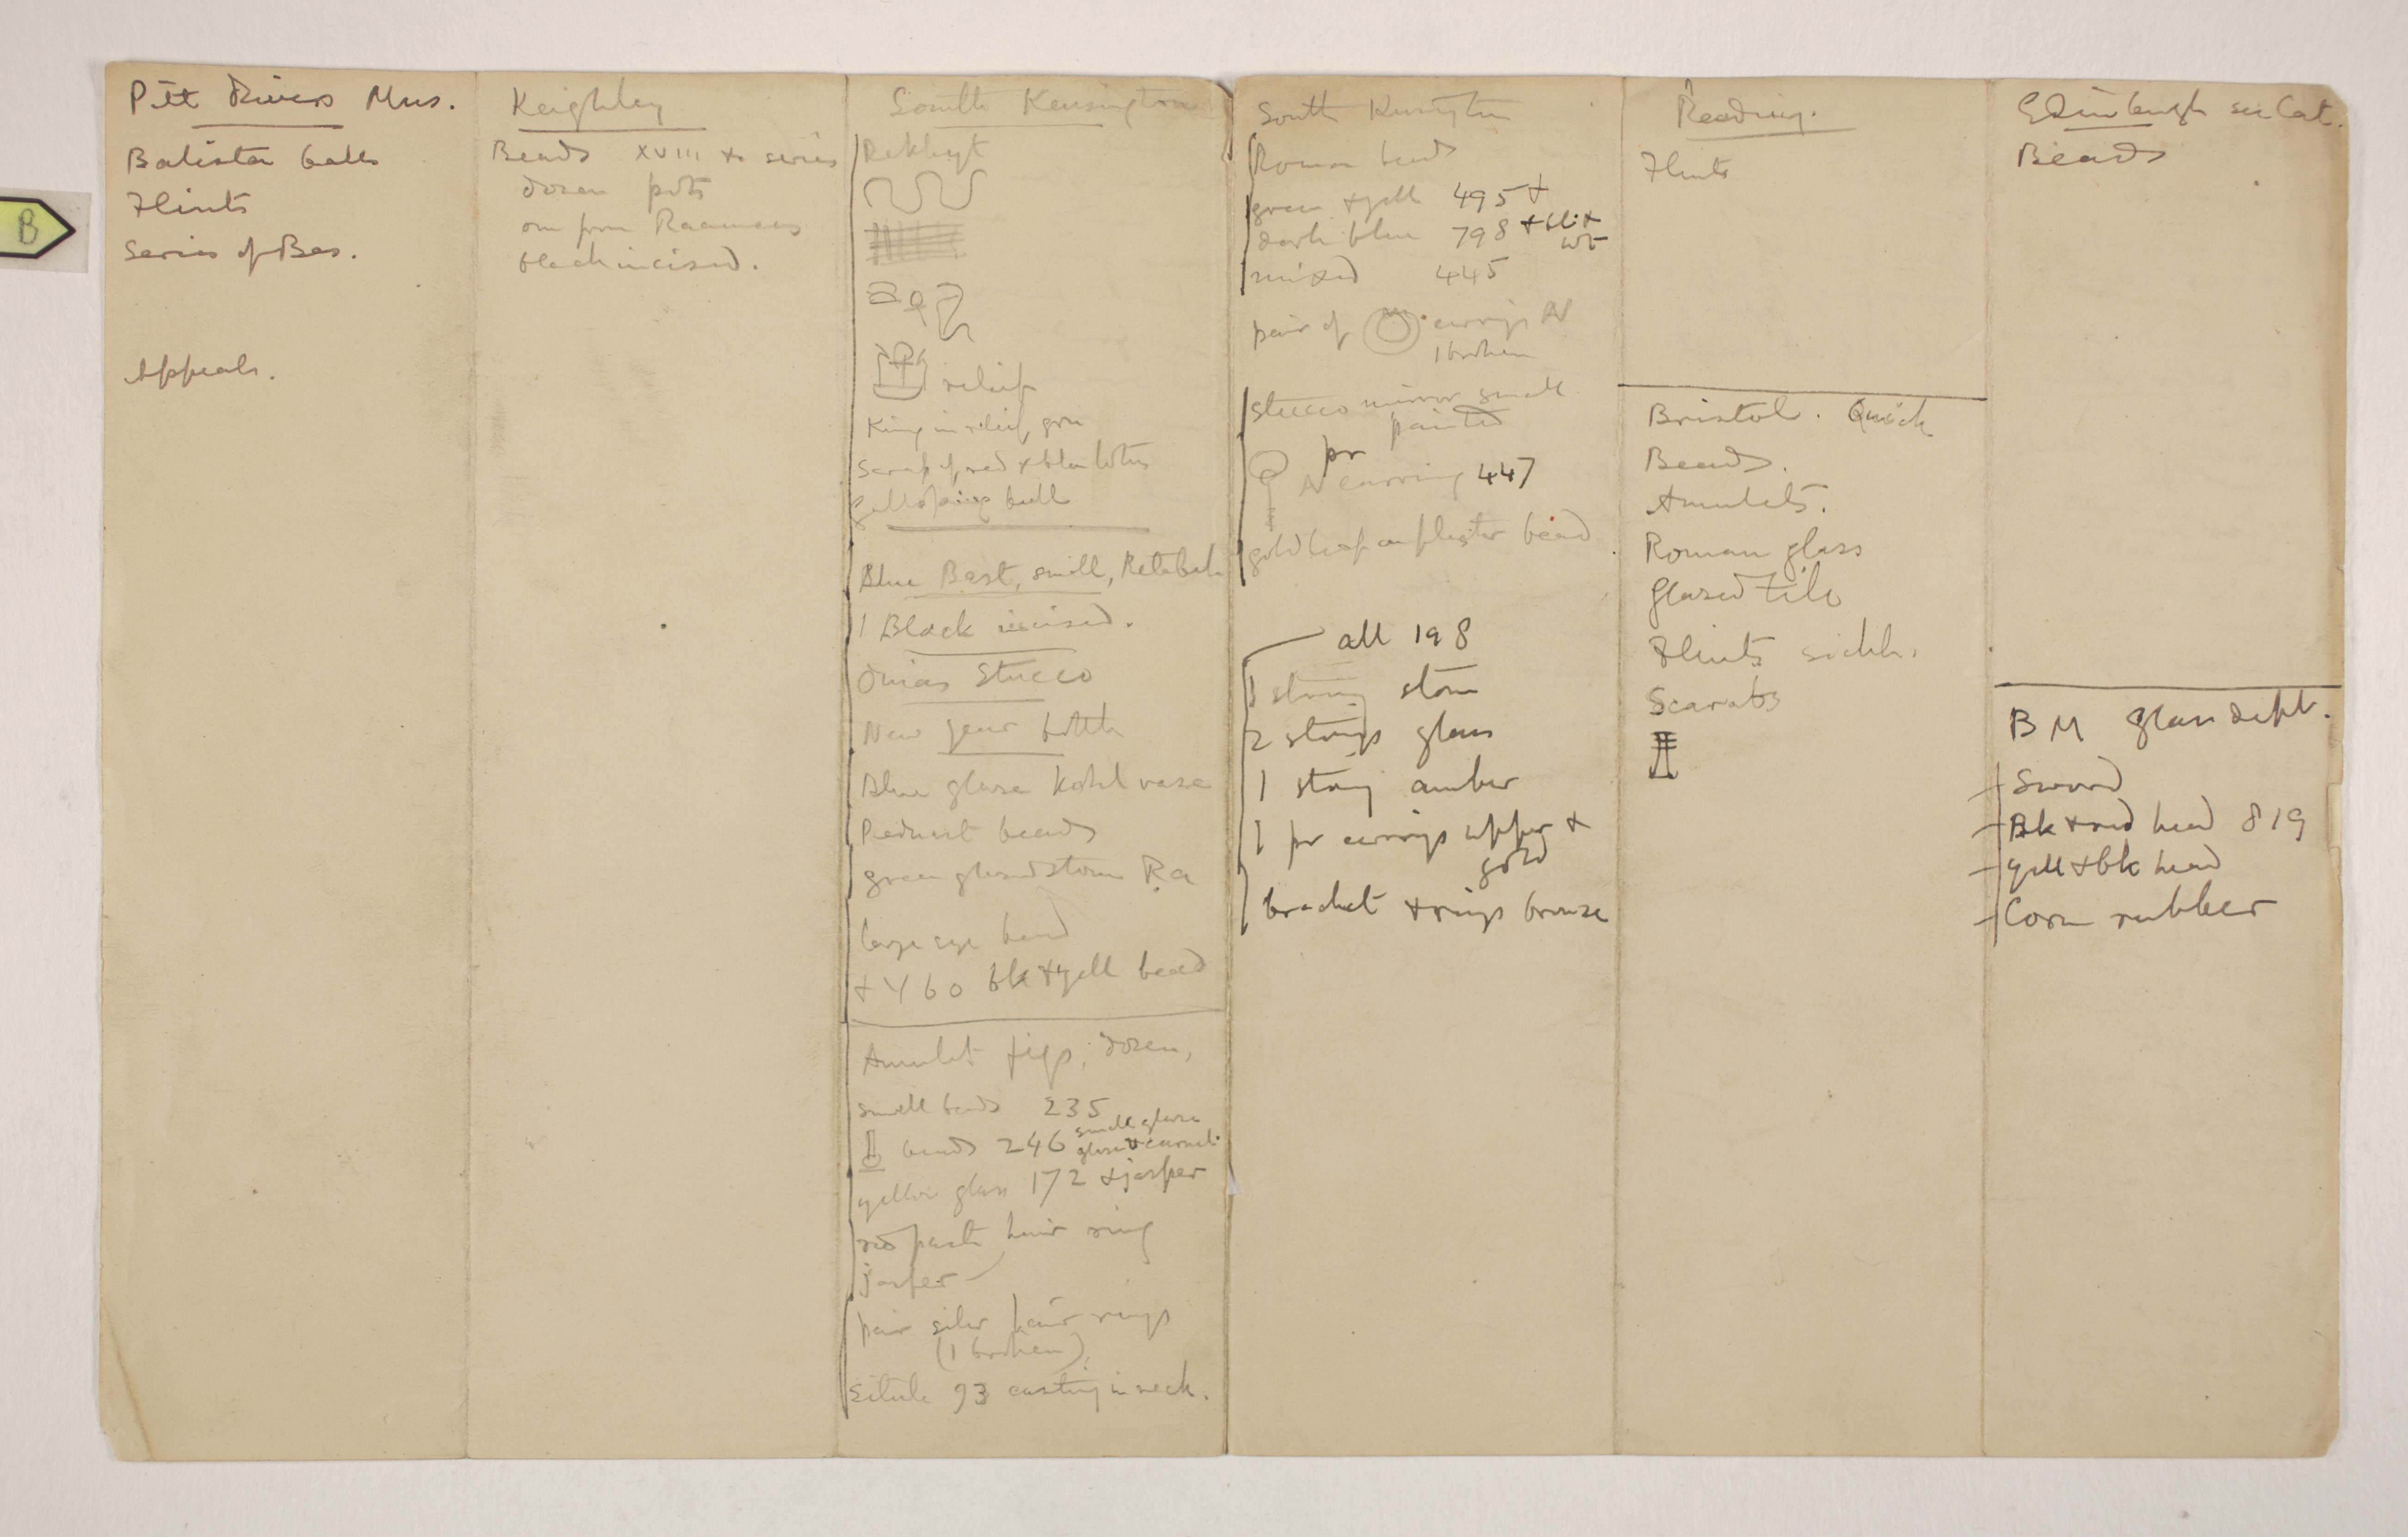 B
Pitt Rivers Mus.
Balista balls
Flints
Series of Bes.
Appeals.
Keighley
Beads XVIII & series
dozen pots
one from Raamses
black incised.
South Kensington
Rekhyt
relief
King in relief, grn
scrap of red & blue lotus
galloping bull
Blue Bast, small, Retabeh
1 Black incised.
Onias Stucco
New year bottle
Blue glaze Kohl vase
Pednest beads
green glazed stone Ra
large eye bead
+ 460 bk + yell bead
Amulet figs, dozen,
small beads 235
beads 246 small glaze
glaze & carnel.
yellow glass 172 & jasper
red paste hair ring
jasper
pair silver hair rings
(1 broken)
situla 93 casting in neck.
South Kensington
Roman beads
green + yell 495 +
dark blue 798 + bl. +
wt
mixed 445
pair of earrings AV
1 broken
stucco mirror small
painted
pr
AV earring 447
gold leaf on plaster bead
all 198
1 string stone
2 strings glass
1 string amber
1 pr earrings copper &
gold
bracelet & rings bronze
Reading.
Flints
Bristol. Quick
Beads.
Amulets.
Roman glass
Glazed tile
Flints sickle.
Scarabs
Edinburgh see Cat.
Beads
BM glass dept.
Sword
Bk + red head 819
yell + bk head
Corn rubber